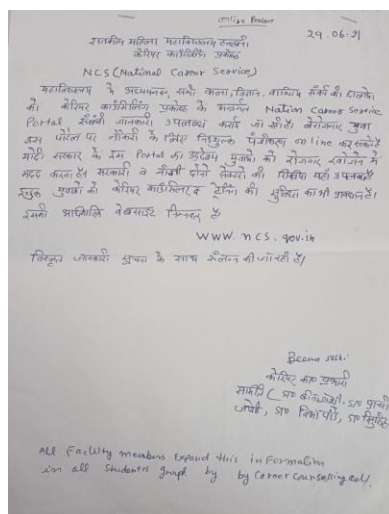 online Person
29.06.21
राजकीय महिला महाविद्यालय हल्द्वानी
कैरियर काउंसिलिंग प्रकोष्ठ
NCS (National Career Service)
महाविद्यालय के अध्ययनरत सभी कला, विज्ञान, वाणिज्य संवर्ग की छात्राओं
को कैरियर काउंसिलिंग प्रकोष्ठ के अन्तर्गत Nation Career Service
Portal संबंधी जानकारी उपलब्ध कराई जा रही है। बेरोजगार युवा
इस पोर्टल पर नौकरी के लिए निशुल्क पंजीकरण online कर सकते हैं
मोदी सरकार के इस Portal का उद्देश्य युवाओं को रोजगार खोजने में
मदद करना है। सरकारी व नौकरी दोनों सेक्टरों की यहाँ उपलब्ध है।
इच्छुक युवाओं को कैरियर काउंसिलिंग व ट्रेनिंग की सुविधा का भी प्रावधान है।
इसकी वेबसाइट निम्नवत् है
www.ncs.gov.in
विस्तृत जानकारी सूचना के साथ संलग्न की जा रही है।
Beena Joshi
कैरियर का० प्रभारी
जोशी, डा०
All Faculty members Expand this information
in all students group by by Career Counselling Cell.